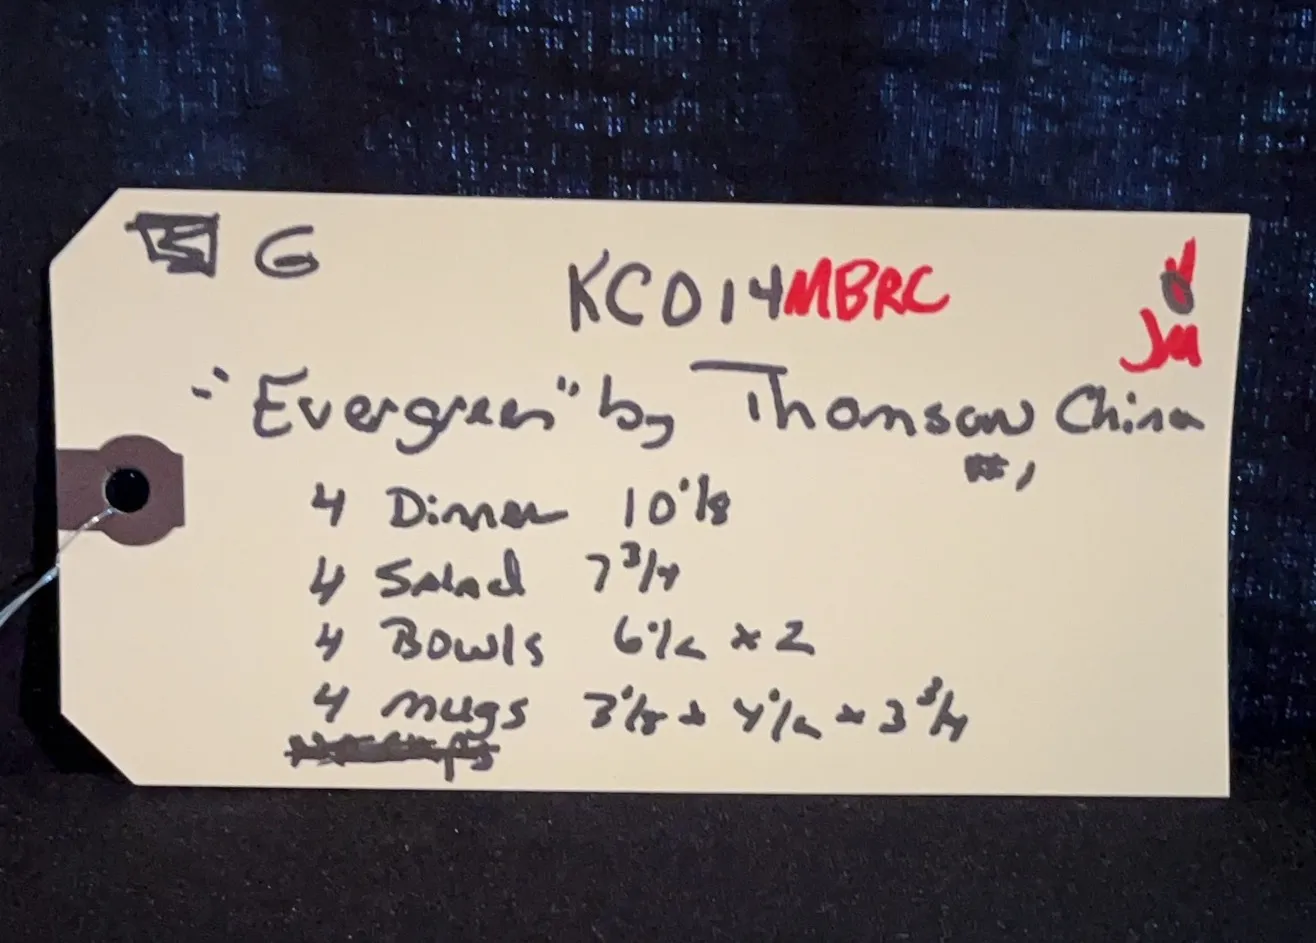 G
KCD14MBRC
JM
"Evergreen" by Thomson China
#1
4 Dinner 10 1/8
4 Salad 7 3/4
4 Bowls 6 1/2 x 2
4 mugs 3 1/8 x 4 1/2 x 3 3/4